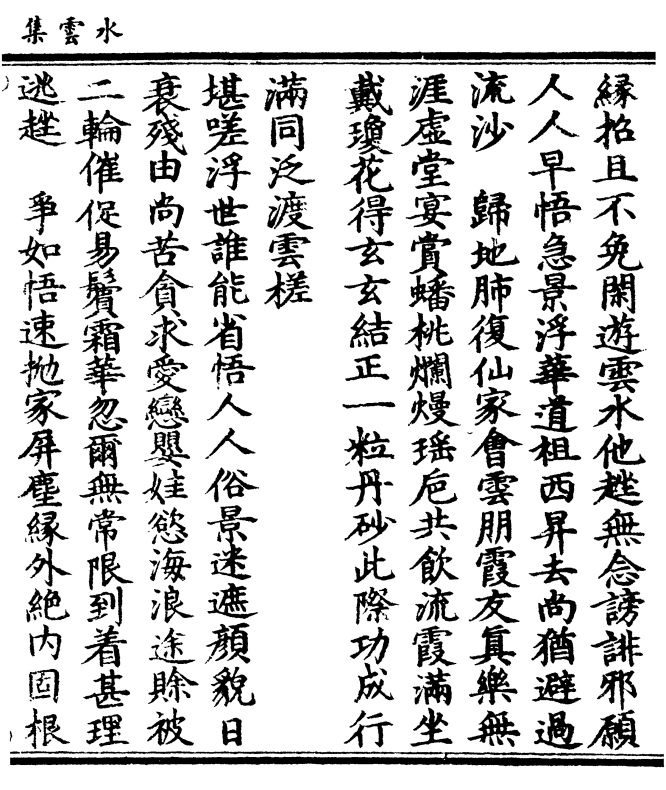 水雲集
縁招且不免閑遊雲水他趖無念謗誹邪願
人人早悟急景浮華道祖西昇去尚猶避過
流沙　歸地肺復仙家會雲朋霞友眞樂無
涯虛堂宴賞蟠桃爛熳瑶卮共飲流霞滿坐
戴瓊花得玄玄結正一粒丹砂此際功成行
滿同泛渡雲槎
堪嗟浮世誰能省悟人人俗景迷遮顔貌日
衰殘由尚苦貪求愛戀嬰娃慾海浪途賒被
二輪催促易鬢霜華忽爾無常限到着甚理
逃趖　爭如悟速抛家屏塵縁外絶内固根